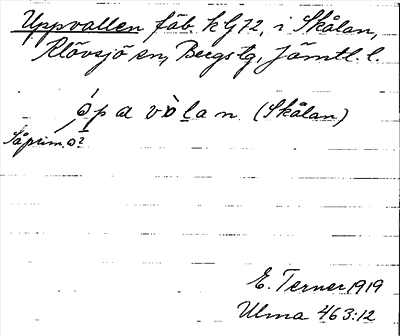 Uppvallen fäb. k G 72, i Skålan,
Klövsjö sn, Bergs tg, Jämtl. l.
ó̱pavòḻan. (Skålan)
Så prim. o?
E. Terner 1919
Ulma 463:12